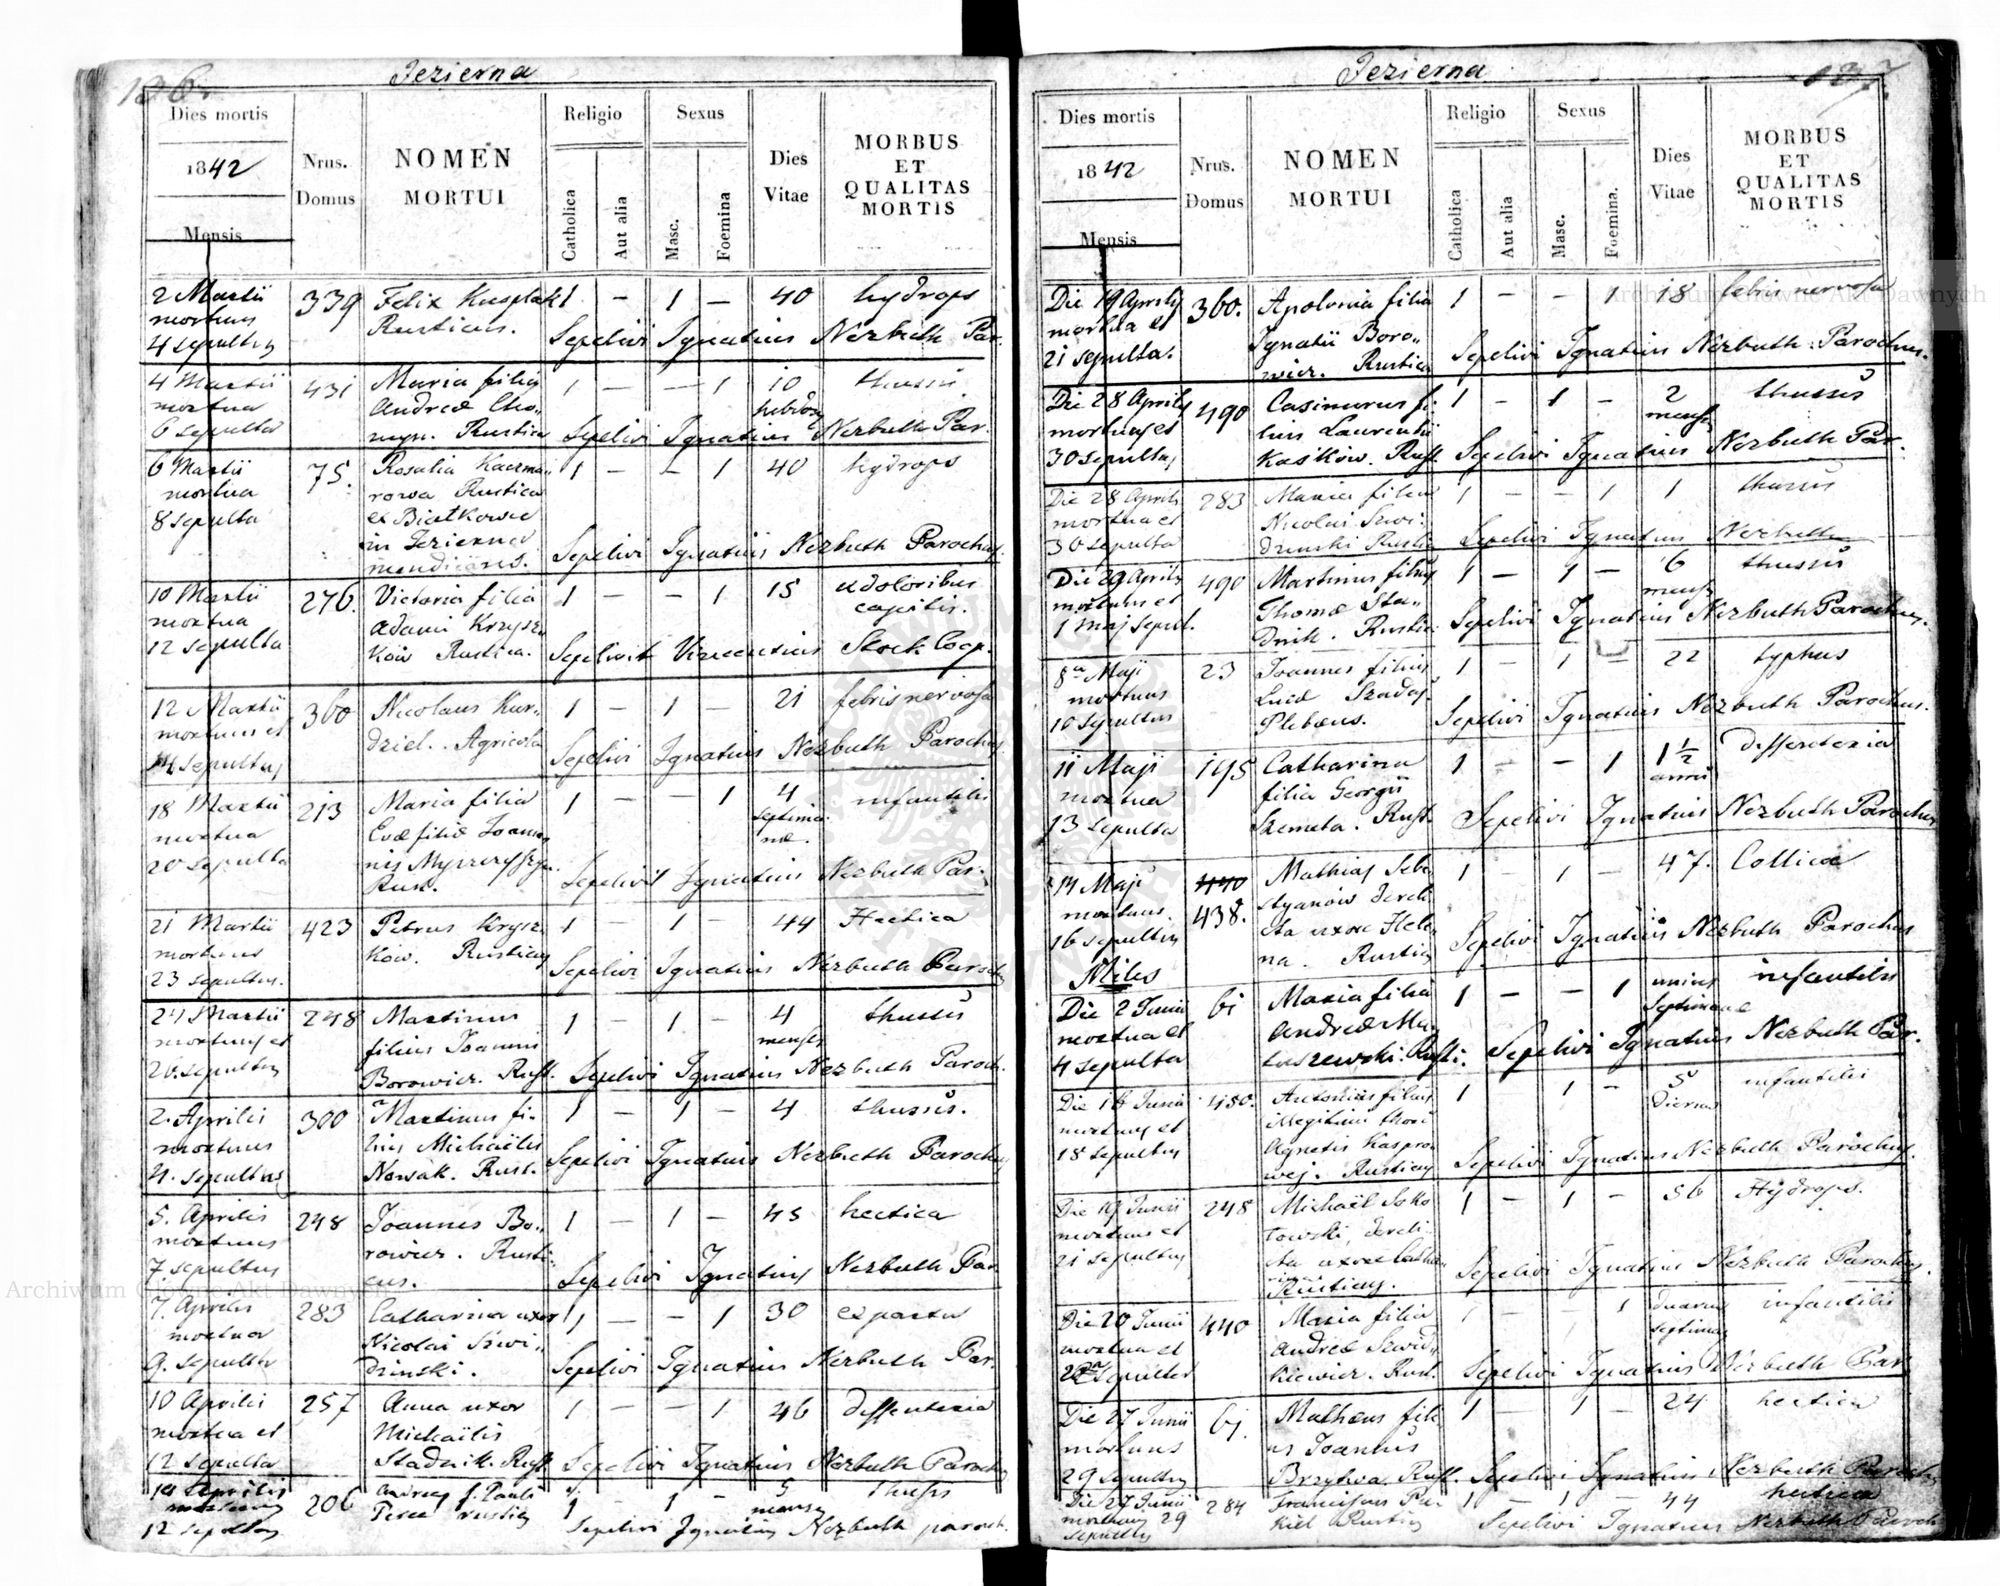 136.
Jezierna
Dies mortis
1842
Mensis
Nrus.
Domus
NOMEN
MORTUI
Religio
Catholica
Aut alia
Sexus
Masc.
Foemina
Dies
Vitae
MORBUS
ET
QUALITAS
MORTIS
2 Martii 339 Felix 1 – 1 – 40 hydrops
mortuus Rusticus.
4 sepultus Sepelivi Ignatius Nezbuth Par.
4 Martii 431 Maria filia 1 – – 1 10 thussis
mortua Andreæ Cho„ hebdom
6 sepulta myn. Rustica Sepelivi Ignatius Nezbuth Par.
6 Martii 75. Rosalia Kaczma„ 1 – – 1 40 hydrops
mortua rowa Rustica
8 sepulta ex Białkowce
in Jezierna
mendicans. Sepelivi Ignatius Nezbuth Parochus.
10 Martii 276. Victoria filia 1 – – 1 15 ex doloribus
mortua Adami Krysz„ capitis.
12 sepulta kow Rustica. Sepelivit Vincentius Stock Coop.
12 Martii 360 Nicolaus Kur„ 1 – 1 – 21 febris nervosa
mortuus et dziel. Agricola
14 sepultus Sepelivi Ignatius Nezbuth Parochus
18 Martii 213 Maria filia 1 – – 1 4 infantilis
mortua Evæ filiæ Joan„ septima„
20 sepulta nis næ.
Rust. Sepelivi Ignatius Nezbuth Par.
21 Martii 423 Petrus Krysz„ 1 – 1 – 44 Hectica
mortuus kow. Rusticus
23 sepultus. Sepelivi Ignatius Nezbuth Parochus
24 Martii 248 Martinus 1 – 1 – 4 thussis
mortuus et filius Joannis menses
26. sepultus Borowicz. Rust. Sepelivi Ignatius Nezbuth Paroch.
2. Aprilis 300 Martinus fi„ 1 – 1 – 4 thussis.
mortuus lius Michaëlis
4. sepultus Nowak. Rust. Sepelivi Ignatius Nezbuth Parochus
5. Aprilis 248 Joannes Bo„ 1 – 1 – 45 hectica
mortuus rowicz. Rusti„
7 sepultus cus. Sepelivi Ignatius Nezbuth Par.
7. Aprilis 283 Catharina uxor 1 – – 1 30 ex partu
mortua Nicolai Szwi„
9. sepulta dzinski. Sepelivi Ignatius Nezbuth Par.
10 Aprilis 257 Anna uxor 1 – – 1 46 diffenteria
mortua et Michaëlis
12 sepulta Stadnik. Rust. Sepelivi Ignatius Nezbuth Parochus
Aprilis 206 Andreas f. Pauli 1 – 1 – 5 thussis
mortuus rusticus menses
12 sepultus Sepelivi Ignatius Nezbuth paroch.
137.
Jezierna
Dies mortis
1842
Mensis
Nrus.
Domus
NOMEN
MORTUI
Religio
Catholica
Aut alia
Sexus
Masc.
Foemina.
Dies
Vitae
MORBUS
ET
QUALITAS
MORTIS
Die 19 Aprilis 360. Apolonia filia 1 – – 1 18 febris nervosa
mortua et Ignatii Boro„
21 sepulta. wicz. Rustica Sepelivi Ignatius Nezbuth Parochus.
Die 28 Aprilis 490 Casimirus fi„ 1 – 1 – 2 thussis
mortuus et lius Laurentii menses
30 sepultus Kaśkow. Rust. Sepelivi Ignatius Nezbuth Par.
Die 28 Aprilis 283 Maria filia 1 – – 1 1 thussis
mortua et Nicolai Szwi„
30 sepulta dzinski Rustica Sepelivi Ignatius Nezbuth
Die 29 Aprilis 490 Martinus filius 1 – 1 – 6 thussis
mortuus et Thomæ Sta„ menses
1 Maj sepult. dnik. Rustic. Sepelivi Ignatius Nezbuth Parochus.
8a Maji 23 Joannes filius 1 – 1 – 22 typhus
mortuus Lucæ
10 sepultus Plebæus. Sepelivi Ignatius Nezbuth Parochus.
11 Maji 195 Catharina 1 – – 1 1 1/2 differteria
mortua filia Georgii anni
13 sepulta Szemeta. Rust. Sepelivi Ignatius Nezbuth Parochus
14 Maji 440 Mathias Seba„ 1 – 1 – 47. Collica
mortuus. 438. styanow dereli„
16 sepultus cta uxore Hele„
Miles na. Rusticus Sepelivi Ignatius Nezbuth Parochus
Die 2 Junii 61 Maria filia 1 – – 1 unius infantilis
mortua et Andreæ Ma„ septimanæ
4 sepulta tuszewski. Rusti. Sepelivi Ignatius Nezbuth Par.
Die 16 Junii 450. Antonius filius 1 – 1 – 5 infantilis
mortuus et illegitimi thori dierum
18 sepultus Agnetis Kaspro„
wej. Rusticus Sepelivi Ignatius Nezbuth Parochus.
Die 19 Junii 248 Michaël Soko„ 1 – 1 – 56 Hydrops.
mortuus et łowski, dereli„
21 sepultus cta uxore Catha„
rina Rusticus. Sepelivi Ignatius Nezbuth Parochus.
Die 20 Junii 440 Maria filia 1 – – 1 duarum infantilis
mortua et Andreæ Szwid„ septiman
22 sepulta kiewicz. Rust. Sepelivi Ignatius Nezbuth Par
Die 27 Junii 61. Mathæus fili„ 1 – 1 – 24 hectica
mortuus us Joannis
29 sepultus Brzytwa. Rust. Sepelivi Ignatius Nezbuth Parochus
Die 27 Junii 284 Franciscus Pa„ 1 – 1 – 44 hectica
mortuus 29 kiel Rusticus
sepultus Sepelivi Ignatius Nezbuth Paroch
Archiwum Główne Akt Dawnych
Archiwum Główne Akt Dawnych